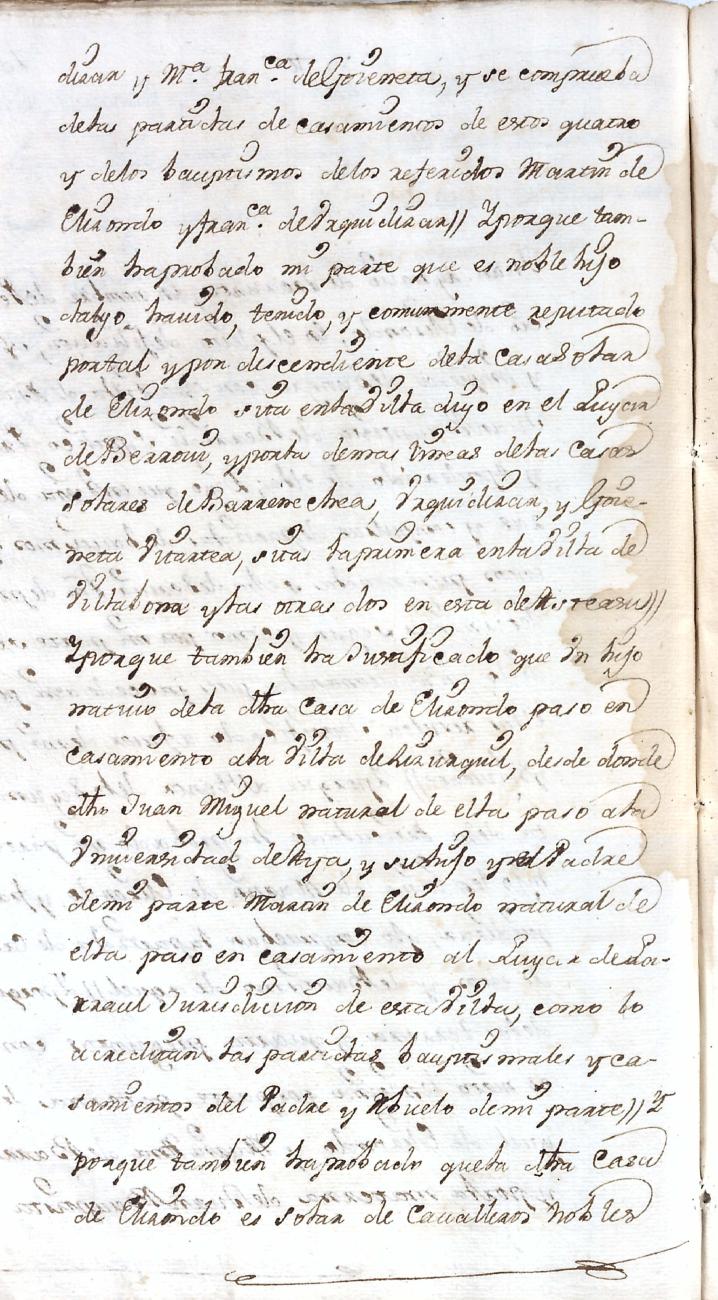 diran y M.ª Fran.ca de Goieneta, y se comprueba
delas partidas de casamientos de estos quatro
y delos bauptismos delos referidos Martin de
Elizondo y fran.ca de Vrquidizar// Yporque tam-
bien haprobado mi parte que es noble hijo
dalgo havido, tenido, y comunmente reputado
portal y por descendiente dela Casa Solar
de Elizondo sita enla Villa digo en el Lugar
de Berrovi, yporla demas lineas delas Casas
Solares de Barrenechea, Vrquidizar, y Goie-
neta Vitartea, sitas laprimera enla Villa de
Villabona ylas otras dos en esta de Asteasu//
Yporque tambien ha Justificado que Vn hijo
nativo dela dha Casa de Elizondo paso en
casamiento ala Villa de Lizurquil, desde donde
dho Juan Miguel natural de ella paso ala
Vniversidad de Aya, y suhijo y el Padre
demi parte Martin de Elizondo natural de
ella paso en casamiento al Lugar de La-
rraul Jurisdicion de esta Villa, como lo
acreditan las partidas bauptismales y ca-
samientos del Padre y Abuelo demi parte// Y
porque tambien haprobado quela dha Casa
de Elizondo es solar de Cavalleros Nobles